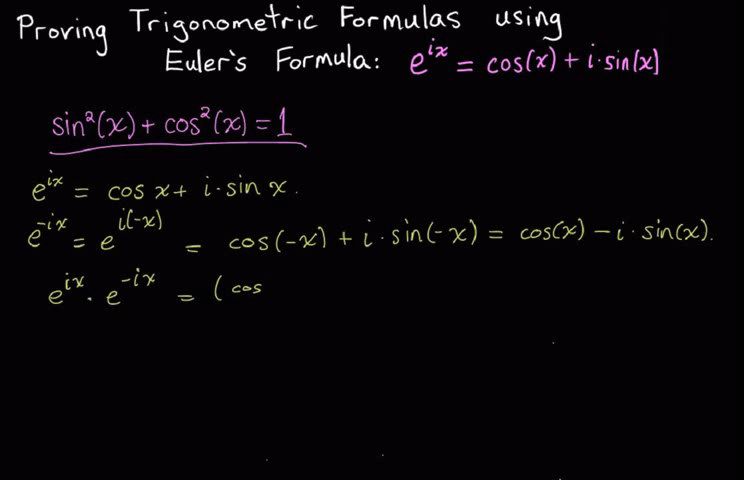 Proving Trigonometric Formulas using
Euler's Formula: e^{ix} = cos(x) + i·sin(x)
sin²(x) + cos²(x) = 1
e^{ix} = cos x + i·sin x.
e^{-ix} = e^{i(-x)} = cos(-x) + i·sin(-x) = cos(x) - i·sin(x).
e^{ix}·e^{-ix} = (cos